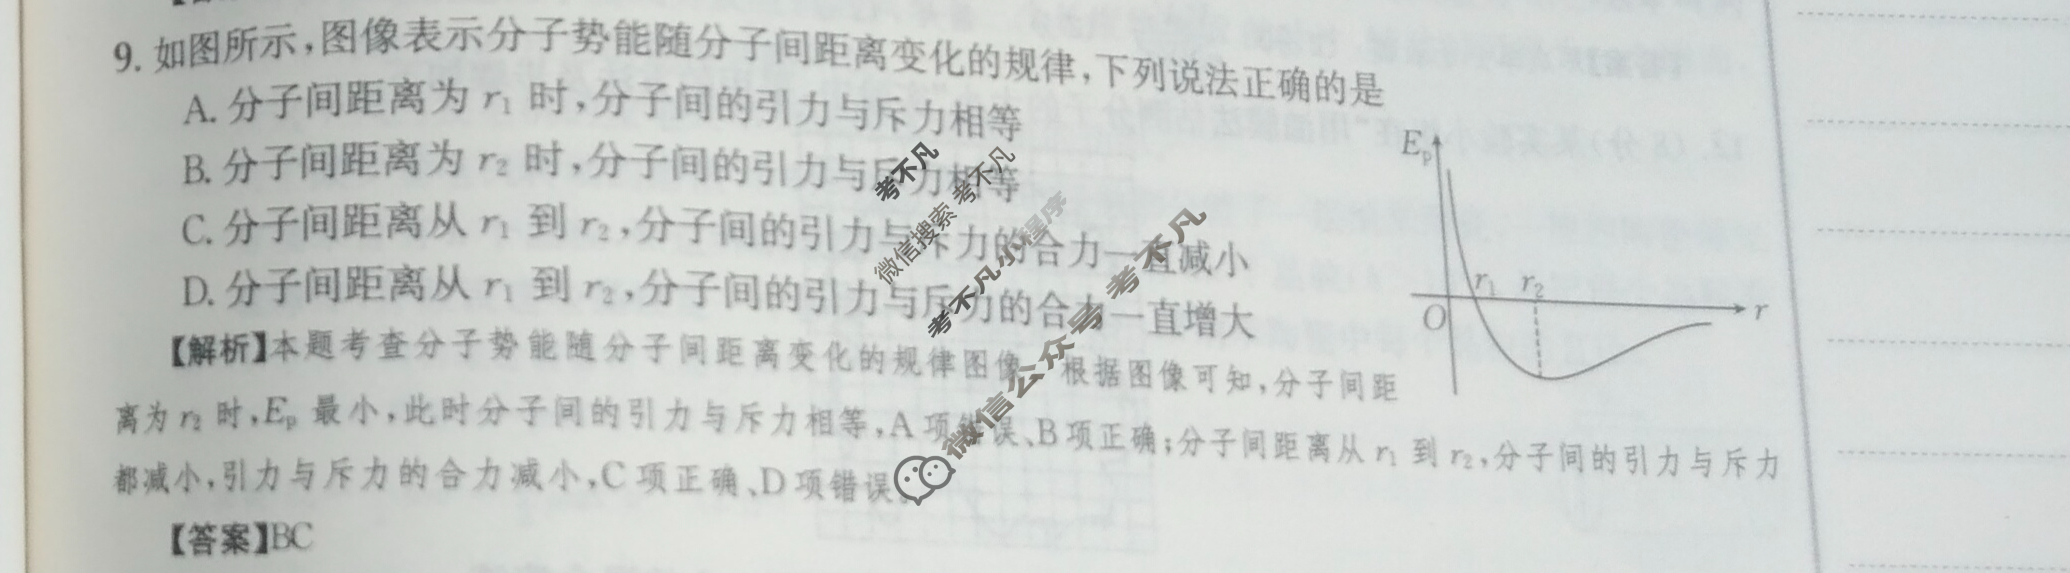 9. 如图所示,图像表示分子势能随分子间距离变化的规律,下列说法正确的是
A. 分子间距离为 r₁ 时,分子间的引力与斥力相等
B. 分子间距离为 r₂ 时,分子间的引力与斥力相等
C. 分子间距离从 r₁ 到 r₂,分子间的引力与斥力的合力一直减小
D. 分子间距离从 r₁ 到 r₂,分子间的引力与斥力的合力一直增大
Eₚ
r₁ r₂
O
r
【解析】本题考查分子势能随分子间距离变化的规律图像。根据图像可知,分子间距
离为 r₂ 时,Eₚ 最小,此时分子间的引力与斥力相等,A 项错误、B 项正确;分子间距离从 r₁ 到 r₂,分子间的引力与斥力
都减小,引力与斥力的合力减小,C 项正确、D 项错误。
【答案】BC
考不凡
微信搜索 考不凡
考不凡小程序
微信公众号 考不凡